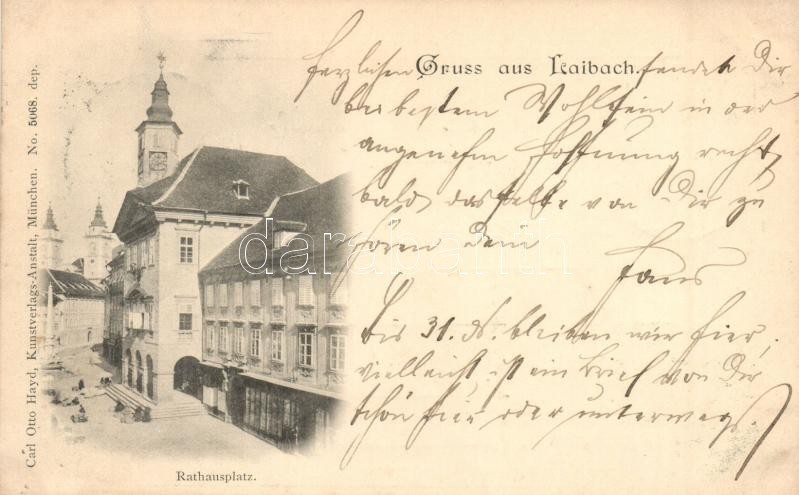 Gruss aus Laibach.
herzlichen sendet Dir
bei bestem Wohlsein in der
angenehmen Hoffnung recht
bald dasselbe von Dir zu
hören dein
Hans
Bis 31. d. bleiben wir hier,
vielleicht ist ein Brief von Dir
schon hier oder unterwegs.
Rathausplatz.
Carl Otto Hayd, Kunstverlags-Anstalt, München. No. 5068. dep.
darabanth